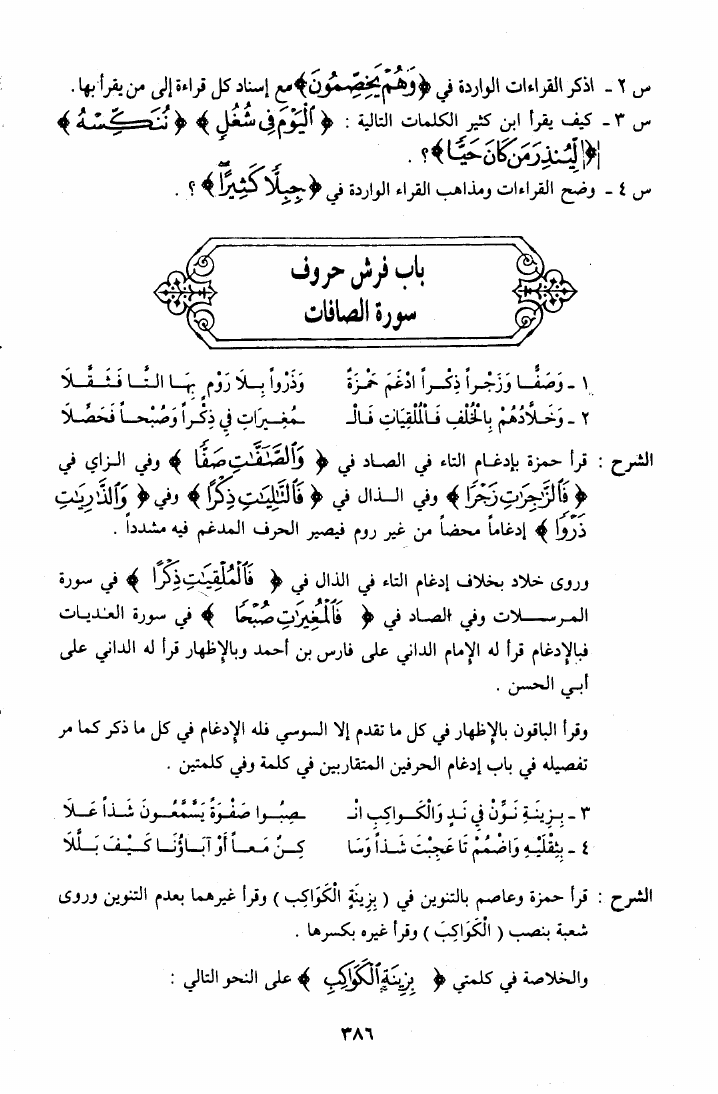 س ٢ - اذكر القراءات الواردة في ﴿وَهُمْ يَخِصِّمُونَ﴾ مع إسناد كل قراءة إلى من يقرأ بها.
س ٣ - كيف يقرأ ابن كثير الكلمات التالية : ﴿ ٱلْيَوْمَ فِى شُغُلٍ ﴾ ﴿ نُنَكِّسْهُ ﴾
﴿لِّيُنذِرَ مَن كَانَ حَيًّا﴾ ؟ .
س ٤ - وضح القراءات ومذاهب القراء الواردة في ﴿جِبِلًّا كَثِيرًا﴾ ؟ .
باب فرش حروف
سورة الصافات
١ - وَصَفًّا وَزَجْراً ذِكْراً ادْغَمَ حَمْزَةٌ وَذَرْواً بِلاَ رَوْمٍ بِهَا التَّا فَثَقَّلاَ
٢ - وَخَلاَّدُهُمْ بِالْخُلْفِ فَالْمُلْقِيَاتِ فَالْـ ـمُغِيرَاتِ فِي ذِكْراً وَصُبْحاً فَحَصِّلاَ
الشرح : قرأ حمزة بإدغام التاء في الصاد في ﴿ وَٱلصَّٰٓفَّٰتِ صَفًّا ﴾ وفي الزاي في
﴿ فَٱلزَّٰجِرَٰتِ زَجْرًا ﴾ وفي الذال في ﴿ فَٱلتَّٰلِيَٰتِ ذِكْرًا ﴾ وفي ﴿ وَٱلذَّٰرِيَٰتِ
ذَرْوًا ﴾ إدغاماً محضاً من غير روم فيصير الحرف المدغم فيه مشدداً .
وروى خلاد بخلاف إدغام التاء في الذال في ﴿ فَٱلْمُلْقِيَٰتِ ذِكْرًا ﴾ في سورة
المرسلات وفي الصاد في ﴿ فَٱلْمُغِيرَٰتِ صُبْحًا ﴾ في سورة العٰديات
فبالإدغام قرأ له الإمام الداني على فارس بن أحمد وبالإظهار قرأ له الداني على
أبي الحسن .
وقرأ الباقون بالإظهار في كل ما تقدم إلا السوسي فله الإدغام في كل ما ذكر كما مر
تفصيله في باب إدغام الحرفين المتقاربين في كلمة وفي كلمتين .
٣ - بِزِينَةِ نَوِّنْ فِي نَدٍ وَالْكَوَاكِبِ انْـ ـصِبُوا صَفْوَةً يَسَّمَّعُونَ شَذاً عَلاَ
٤ - بِثِقْلَيْهِ وَاضْمُمْ تَا عَجِبْتَ شَذاً وَسَا كِنٌ مَعاً أَوْ آبَاؤُنَا كَيْفَ بَلَّلاَ
الشرح : قرأ حمزة وعاصم بالتنوين في ( بِزِينَةٍ الْكَوَاكِبِ ) وقرأ غيرهما بعدم التنوين وروى
شعبة بنصب ( الْكَوَاكِبَ ) وقرأ غيره بكسرها .
والخلاصة في كلمتي ﴿ بِزِينَةٍ ٱلْكَوَاكِبِ ﴾ على النحو التالي :
٣٨٦